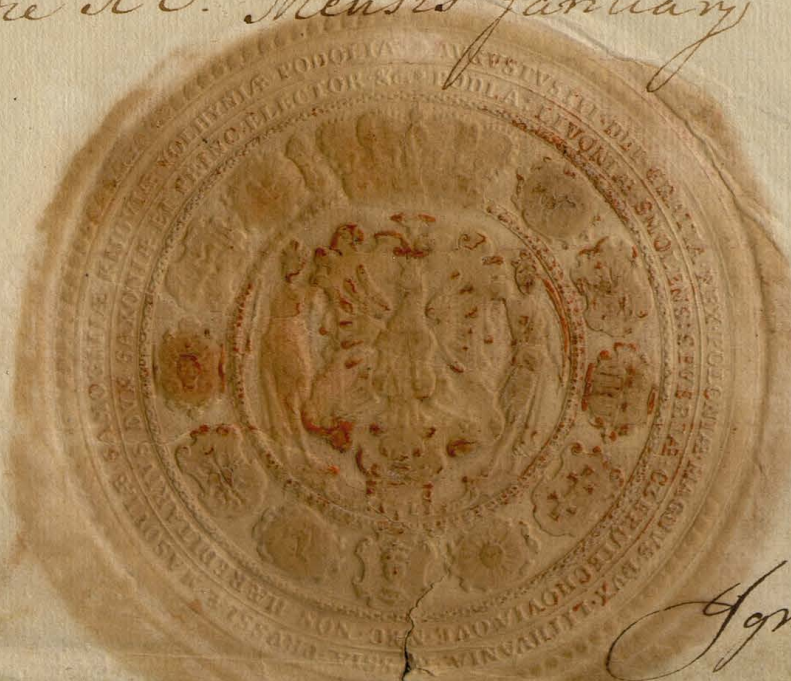 Mensis January
AVGVSTVS III · DEI GRATIA REX POLONIÆ MAGNUS DUX LITHVANIÆ RVSSIÆ PRVSSIÆ MASOVIÆ SAMOGITIÆ KYIOVIÆ VOLHYNIÆ PODOLIÆ
PODLA: LIVONIÆ SMOLENS: SEVERIÆ CZERNIECHOVIÆQVE NEC NON HÆREDITARIUS DUX SAXONIÆ ET PRINC: ELECTOR &c